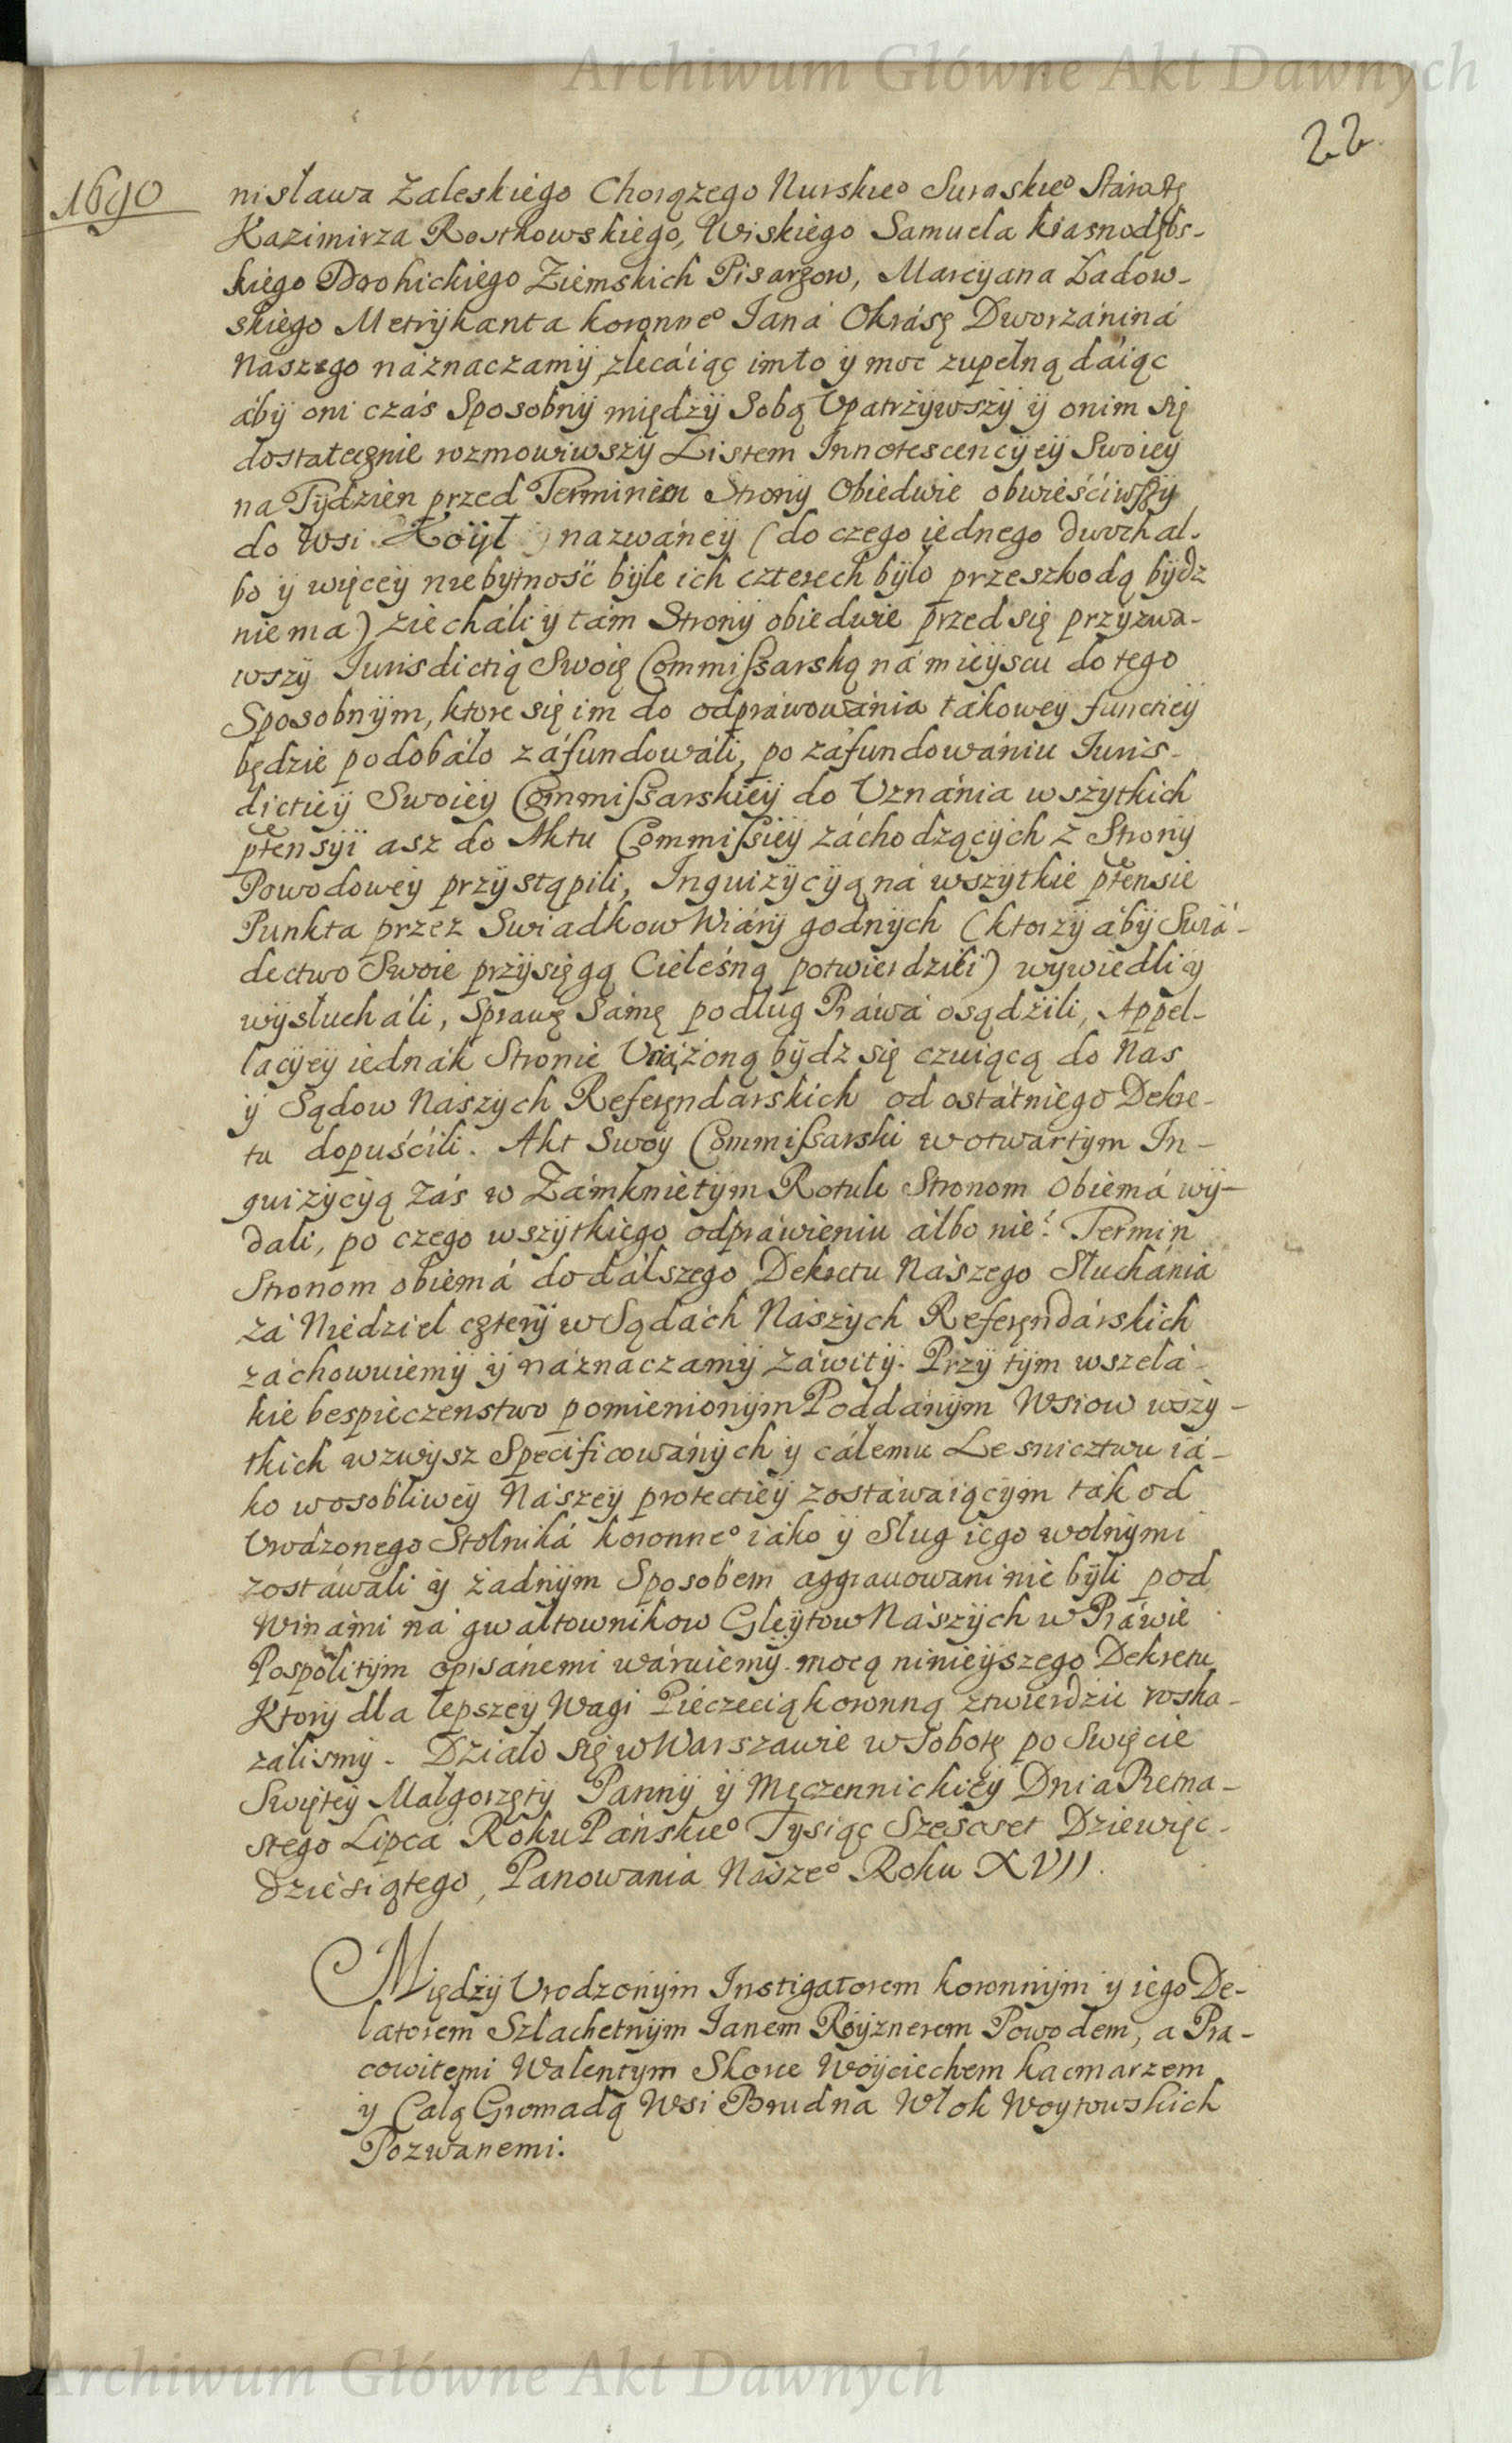 Archiwum Główne Akt Dawnych
22.
1690
nisława Zaleskiego Chorązego Nurskieº Suraskieº Starostę
Kazimirza Rostkowskiego, Wiskiego Samuela Krasnodębs-
kiego Drohickiego Ziemskich Pisarzow, Marcyana Ładow-
skiego Metrykanta koronneº Iana Okrasę Dworzánina
Nászego náznaczamy zlecáiąc im to y moc zupełną dáiąc
áby oni czás Sposobny między Sobą Vpatrzywszy y onim się
dostatecznie rozmowiwszy Listem Innotescencyey Swoiey
na Tydzien przed Terminem Strony Obiedwie obwieściwszy
do Wsi nazwáney (do czego iednego dwoch al-
bo y więcey niebytność byle ich czterech było przeszkodą bydz
niema) ziecháli y tám Strony obiedwie przed się przyzwa-
wszy Iurisdictią Swoię Commissarską ná mieyscu do tego
Sposobnym, ktore się im do odpráwowánia tákowey functiey
będzie podobáło záfundowáli, po záfundowániu Iuris-
dictiey Swoiey Commissarskiey do Vznánia wszytkich
ptensyi asz do Aktu Commissiey záchodzących z Strony
Powodowey przystąpili, Inguizycyą ná wszytkie ptensie
Punkta przez Swiadkow Wiáry godnych (ktorzy áby Swiá-
dectwo Swoie przysięgą Cieleśną potwierdzili) wywiedli y
wysłucháli, Sprawę Sámę podług Práwá osądzili, Appel-
lacyey iednák Stronie Vciążoną bydz się czuiącą do Nas
y Sądow Nászych Referęndarskich od ostátniego Dekre-
tu dopuścili. Akt Swoy Commissarski w otwartym In-
guizycyą zás w Zámknietym Rotule Stronom Obiemá wy-
dali, po czego wszytkiego odpráwieniu álbo nie. Termin
Stronom obiemá do dálszego Dekretu Nászego Słuchánia
zá Niedziel cztery w Sądách Nászych Referęndárskich
záchowuiemy y náznaczamy záwity. Przy tym wszelá-
kie bespieczenstwo pomienionym Poddánym Wsiow wszy-
tkich wzwysz Specificowánych y cáłemu Lesnicztwu iá-
ko wosobliwey Nászey protectiey zostáwaiącym ták od
Vrodzonego Stolniká koronneº iáko y Sług iego wolnymi
zostáwali y żadnym Sposobem aggrauowani nie byli pod
Winámi ná gwałtownikow Gleytow Nászych w Práwie
Pospolitym opisánemi wáruiemy mocą ninieyszego Dekretu
Ktory dla lepszey Wagi Pieczecią koronną ztwierdzic roska-
zálismy. Działo się w Warszawie w Sobotę po Swięcie
Swiętey Małgorzęty Panny y Męczennickiey Dnia Pietna-
stego Lipca Roku Páńskieº Tysiąc Szescset Dziewięc-
dziesiątego, Panowania Nászeº Roku XVII.
Między Vrodzonym Instigatorem koronnym y iego De-
latorem Szlachetnym Ianem Royznerem Powodem, a Pra-
cowitemi Walentym Skore Woyciechem kacmarzem
y Całą Gromadą Wsi Brudna Włok Woytowskich
Pozwanemi.
Archiwum Główne Akt Dawnych